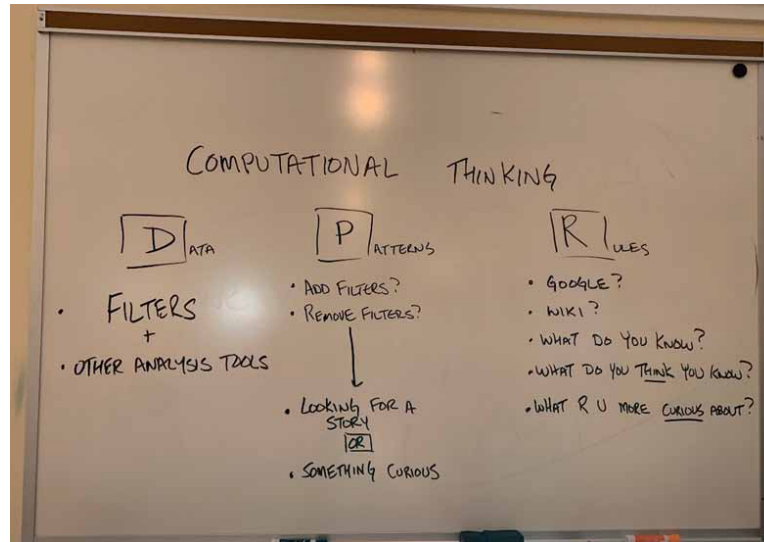 COMPUTATIONAL THINKING
DATA
• FILTERS
+
• OTHER ANALYSIS TOOLS
PATTERNS
• ADD FILTERS?
• REMOVE FILTERS?
• LOOKING FOR A
STORY
OR
• SOMETHING CURIOUS
RULES
• GOOGLE?
• WIKI?
• WHAT DO YOU KNOW?
• WHAT DO YOU THINK YOU KNOW?
• WHAT R U MORE CURIOUS ABOUT?